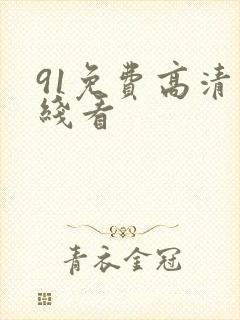 91免费高清
綫看
青衣金冠